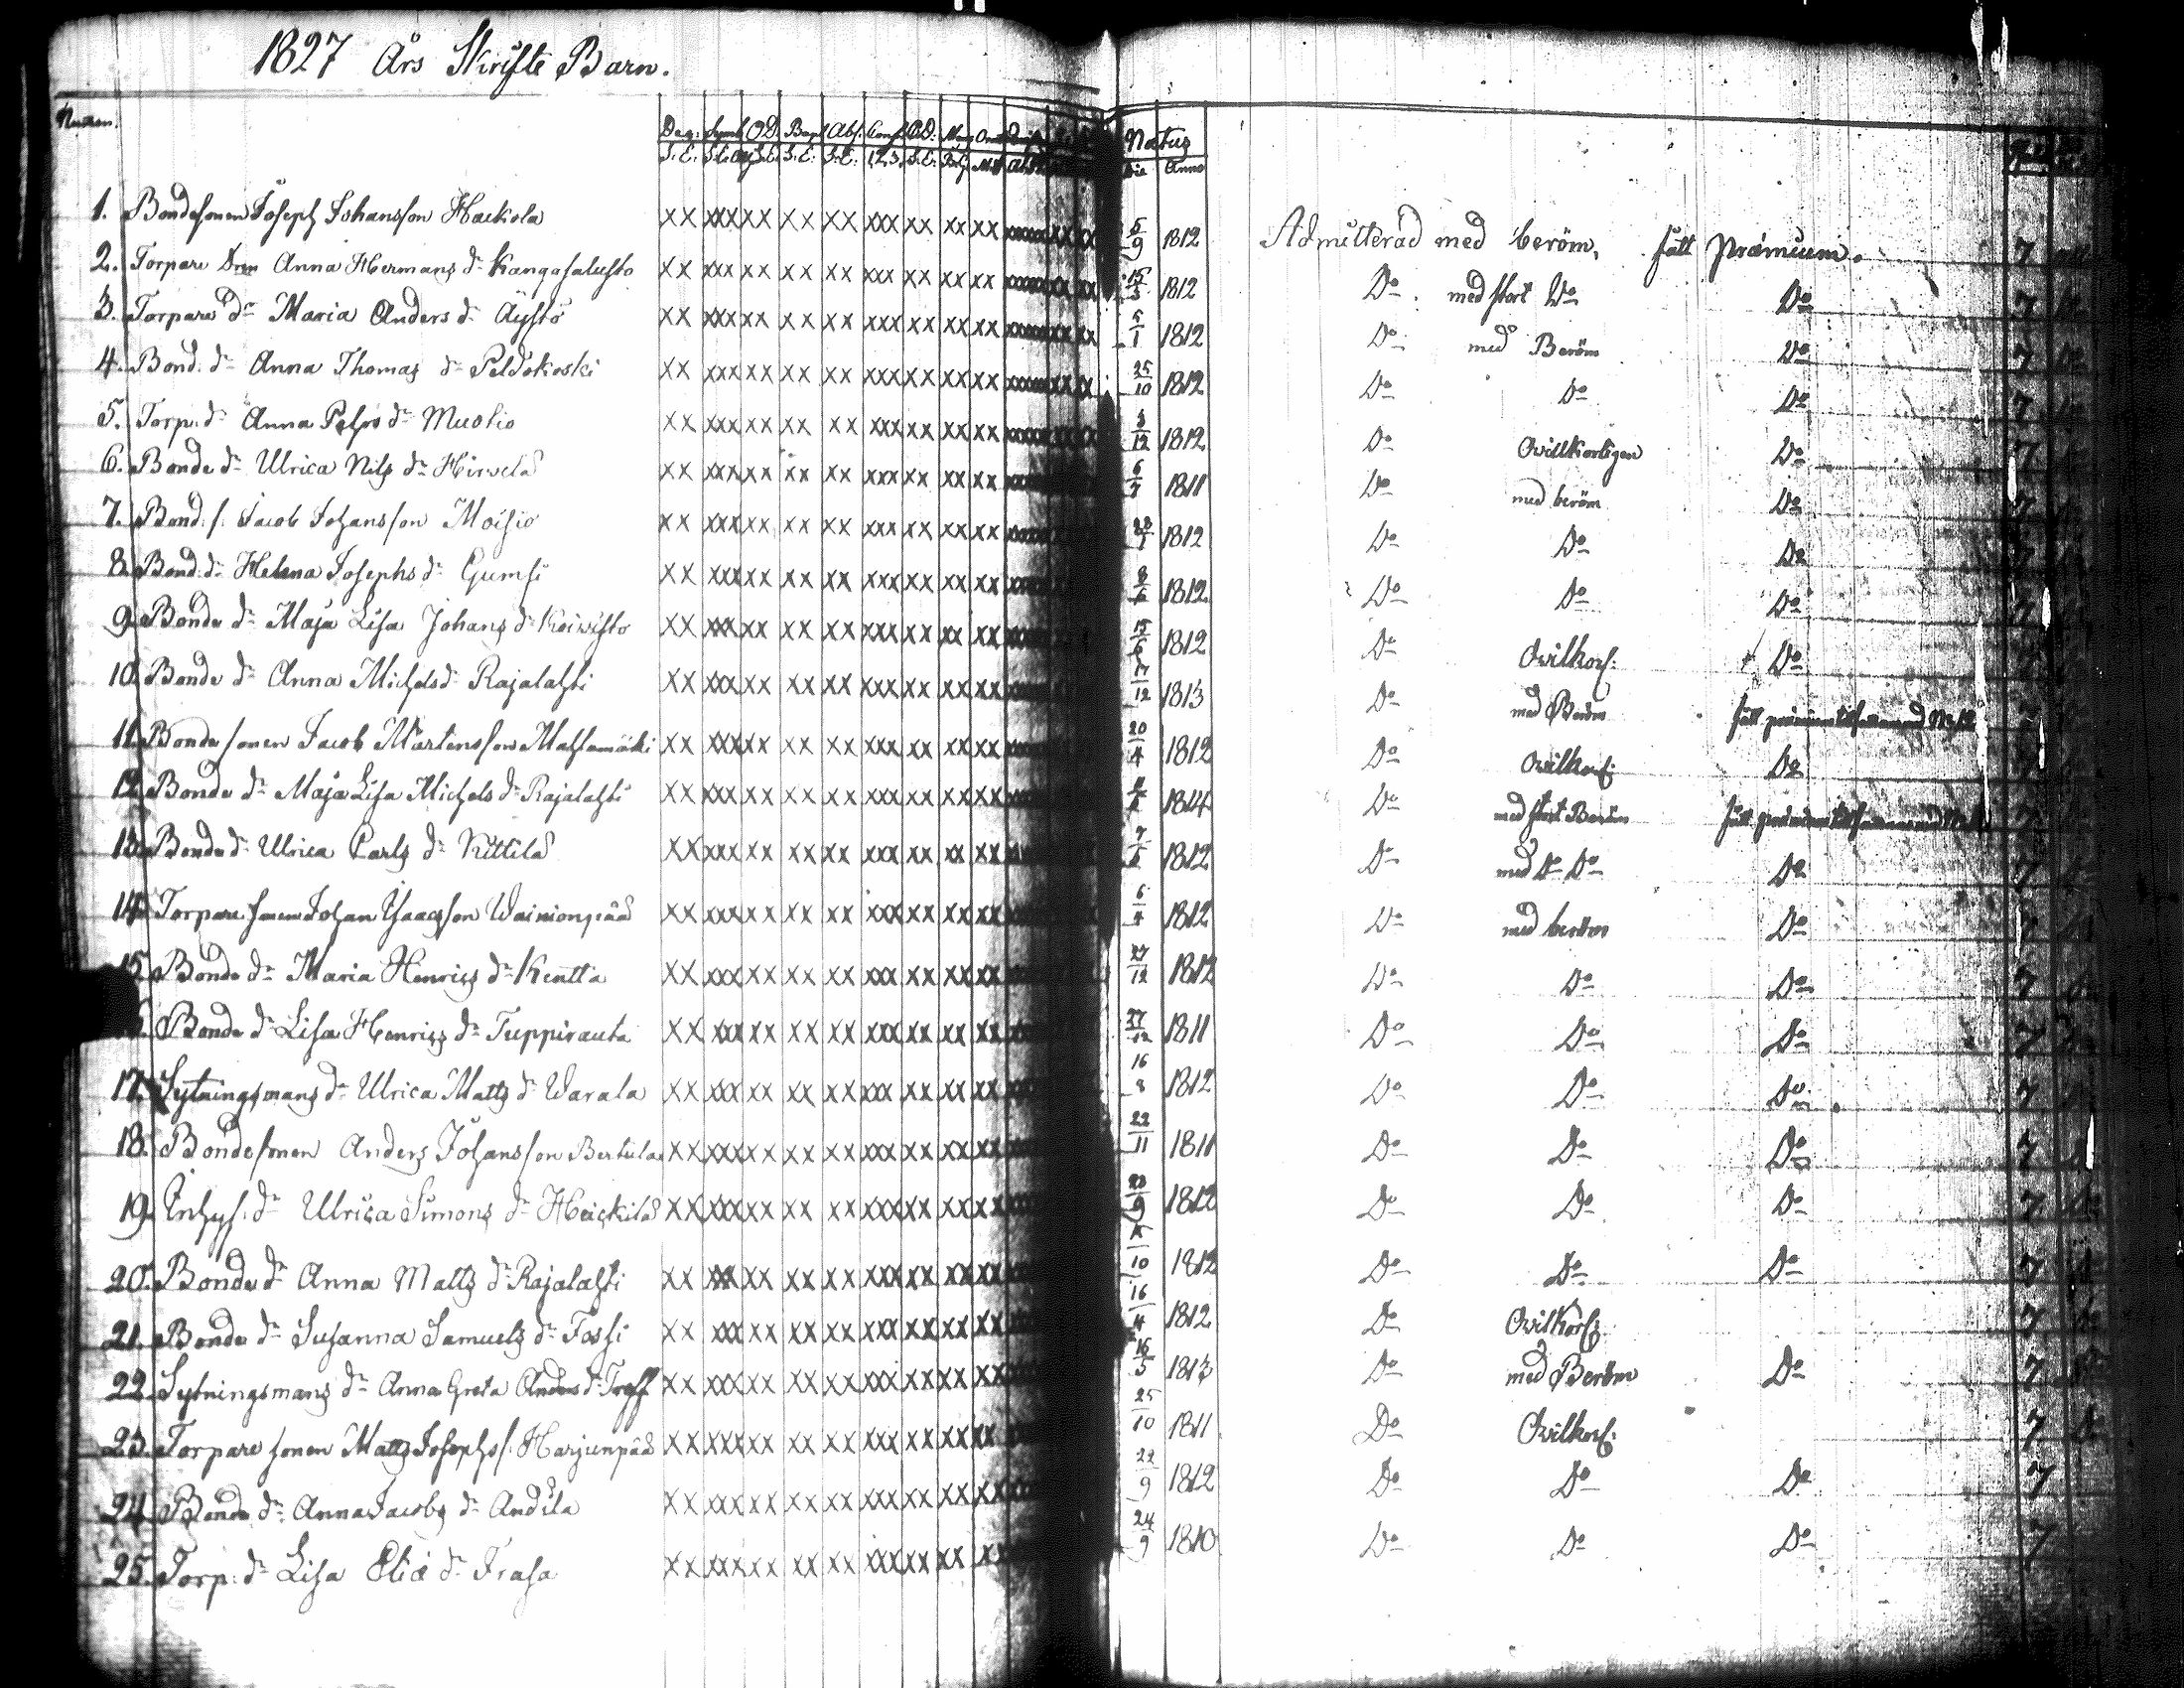 1827 Års Skrifte Barn.
Numern.
Dec: Symb O.D. Bapt Abs: Conf C.D: Natus
S.E. S.E. S.E: S.E: 1.2.3. S.E: Die Anno
1. Bondesonen Joseph Johansson Hackola xx xxx xx xx xx xxx xx xx xx 5/9 1812 Admitterad med beröm, fått præmium. 7
2. Torpare Drn Anna Hermans dr Kangasalusto xx xxx xx xx xx xxx xx xx xx 15/5 1812 Do med stort Do Do 7
3. Torpare dr Maria Anders dr Äystö xx xxx xx xx xx xxx xx xx xx 5/1 1812 Do med Beröm Do 7
4. Bond. dr Anna Thomas dr Peldokoski xx xxx xx xx xx xxx xx xx xx 25/10 1812 Do Do Do 7
5. Torp. dr Anna Pehrs dr Muotio xx xxx xx xx xx xxx xx xx xx 3/12 1812 Do Ovillkorligen Do 7
6. Bonde dr Ulrica Nils dr Hirvelä xx xxx xx xx xx xxx xx xx xx 6/7 1811 Do med beröm Do
7. Bond. s. Jacob Johansson Moisio xx xxx xx xx xx xxx xx xx xx 1812 Do Do Do
8. Bond. dr Helena Josephs dr Gumsi xx xxx xx xx xx xxx xx xx xx 1812 Do Do Do
9. Bonde dr Maja Lisa Johans dr Koivisto xx xxx xx xx xx xxx xx xx xx 15/6 1812 Do Ovilkorl: Do
10. Bonde dr Anna Michels dr Rajalahti xx xxx xx xx xx xxx xx xx xx 17/12 1813 Do med Beröm fått præmium tillsamman med No 12
11. Bonde sonen Jacob Mårtensson Mahlamäki xx xxx xx xx xx xxx xx xx xx 20/4 1812 Do Ovilkorl: Do
12. Bonde dr Maja Lisa Michels dr Rajalahti xx xxx xx xx xx xxx xx xx xx 1814 Do med stort Beröm fått præmium tillsamman med No 7
13. Bonde dr Ulrica Carls dr Kittilä xx xxx xx xx xx xxx xx xx xx 1812 Do med Do Do Do 7
14. Torpare sonen Johan Isaacsson Wainionpää xx xxx xx xx xx xxx xx xx xx 6/4 1812 Do med beröm Do 7
15. Bonde dr Maria Henrics dr Kentta xx xxx xx xx xx xxx xx xx xx 27/12 1812 Do Do Do 7
Bonde dr Lisa Henrics dr Tuppirauta xx xxx xx xx xx xxx xx xx xx 27/12 1811 Do Do Do 7
17. Sytningsmans dr Ulrica Matts dr Warala xx xxx xx xx xx xxx xx xx xx 16/8 1812 Do Do Do 7
18. Bondesonen Anders Johansson Bertula xx xxx xx xx xx xxx xx xx xx 22/11 1811 Do Do Do 7
19. Inhys. dr Ulrica Simons dr Heickilä xx xxx xx xx xx xxx xx xx xx 1812 Do Do Do 7
20. Bonde dr Anna Matts dr Rajalahti xx xxx xx xx xx xxx xx xx xx 1812 Do Do Do 7
21. Bonde dr Susanna Samuels dr Fossi xx xxx xx xx xx xxx xx xx xx 16/4 1812 Do Ovilkorl: 7
22. Sytningsmans dr Anna Greta Anders dr xx xxx xx xx xx xxx xx xx xx 16/5 1813 Do med Beröm Do 7
23. Torpare sonen Matts Josephss. Harjunpää xx xxx xx xx xx xxx xx xx xx 25/10 1811 Do Ovilkorl: 7
24. Bonde dr Anna Jacobs dr Andila xx xxx xx xx xx xxx xx xx xx 22/9 1812 Do Do Do 7
25. Torp. dr Lisa Eliæ dr Frasa xx xxx xx xx xx xxx xx xx xx 24/9 1810 Do Do Do 7